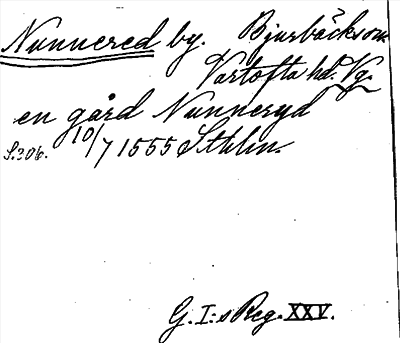 Nunnered by. Bjurbäcks sn.
Vartofta hd. Vg.
en gård Nunneryd
S.206. 10/7 1555 Sthlm.
G. I:s Reg. XXV.